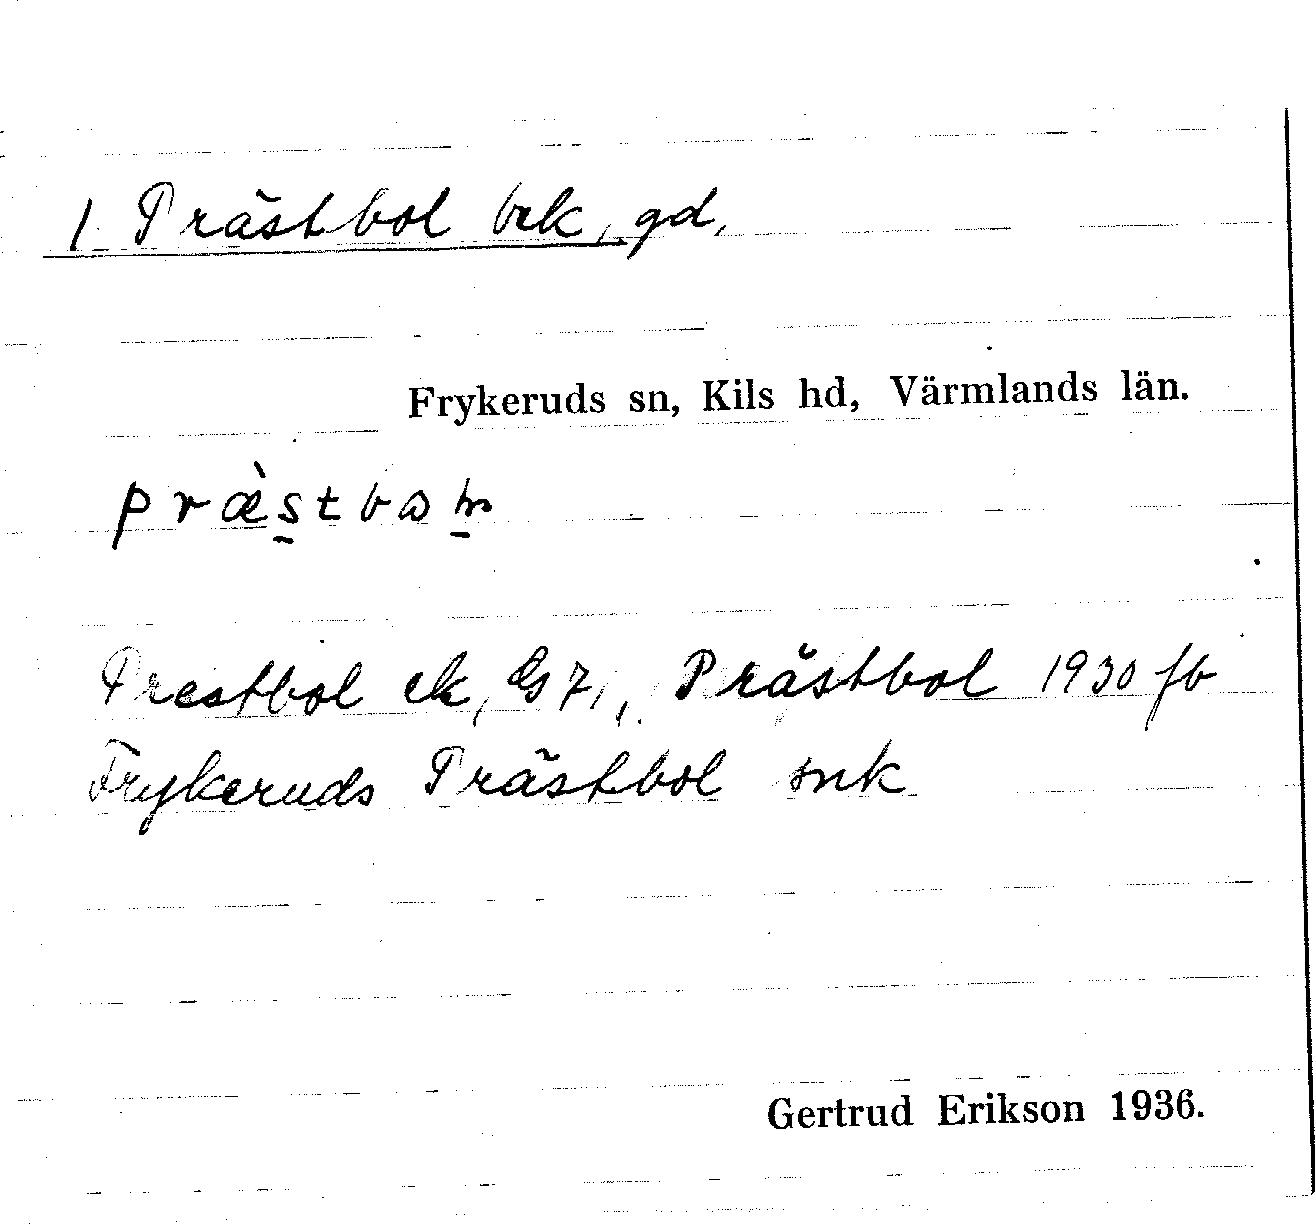 1 Prästbol bek, gd,
Frykeruds sn, Kils hd, Värmlands län.
Prestbol ek, Gs 7, Prästbol 1930 fb
Frykeruds Prästbol snk
Gertrud Erikson 1936.